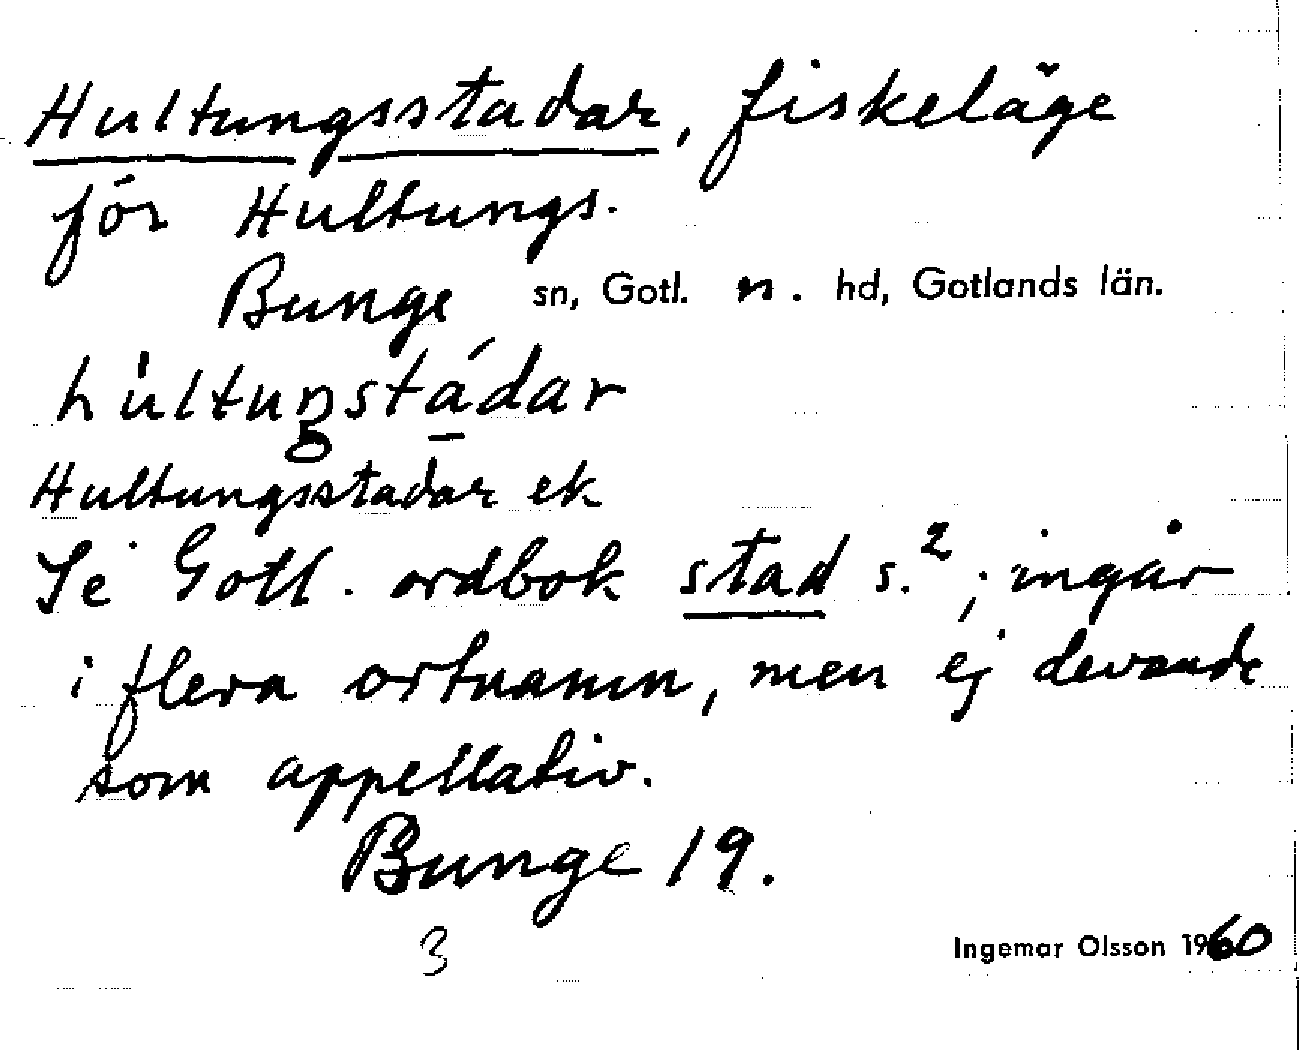 Hultungsstadar, fiskeläge
för Hultungs.
Bunge sn, Gotl. n. hd, Gotlands län.
hùltuŋstádar
Hultungsstadar ek
Se Gotl. ordbok stad s.²; ingår
i flera ortnamn, men ej levande
som appellativ.
Bunge 19.
3
Ingemar Olsson 1960